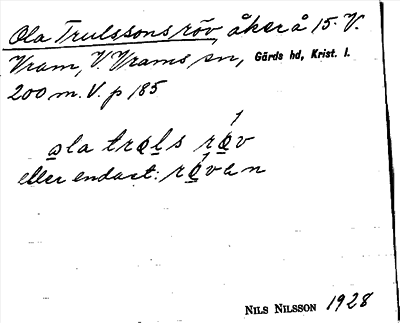 Ola Trulssons röv, åker å 15. V.
Vram, V. Vrams sn, Gärds hd, Krist. l.
200 m. V. p 185
ola trols röv
eller endast: røvan
NILS NILSSON 1928